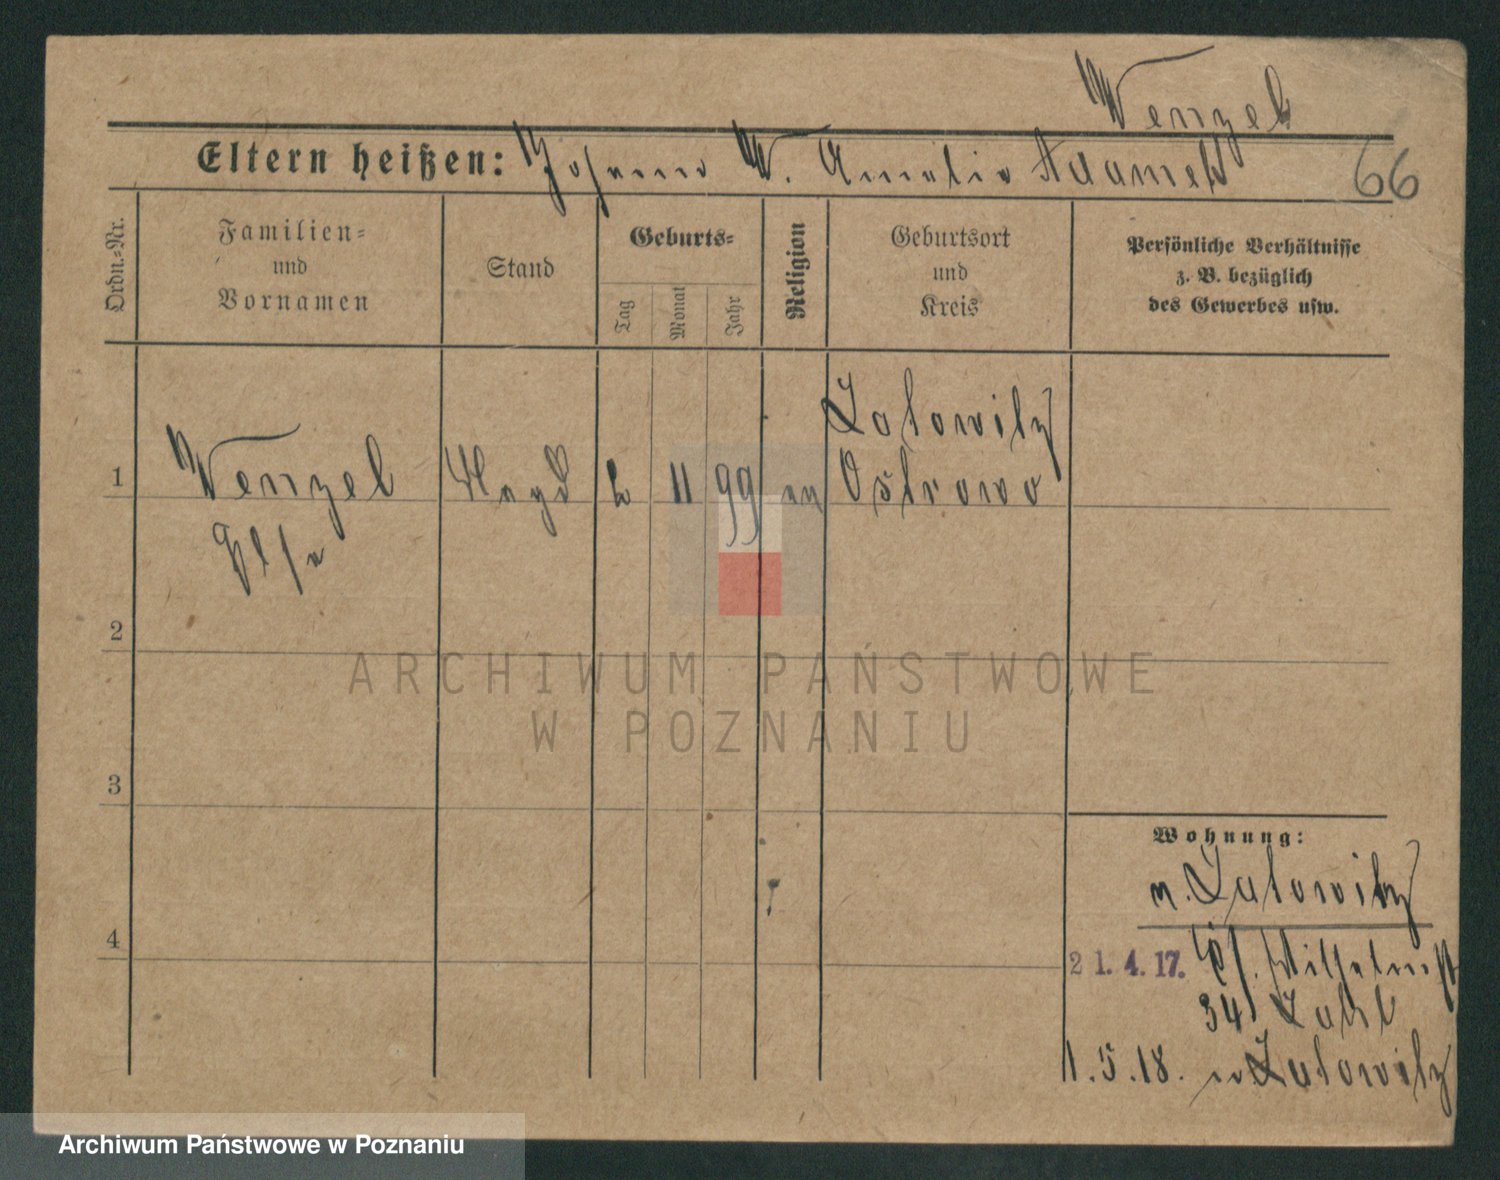 Wenzel
Eltern heißen: Johann W. Amalie Adamek
66
Ordn.-Nr.
Familien-
und
Vornamen
Stand
Geburts-
Tag
Monat
Jahr
Religion
Geburtsort
und
Kreis
Persönliche Verhältnisse
z. B. bezüglich
des Gewerbes usw.
Latowitz
1 Wenzel Magd 2 11 99 ev Ostrowo
Else
2
3
4
ARCHIWUM PAŃSTWOWE
W POZNANIU
Wohnung:
n. Latowitz
21.4.17. Wilhelmst
34
1.5.18. n Latowitz
Archiwum Państwowe w Poznaniu